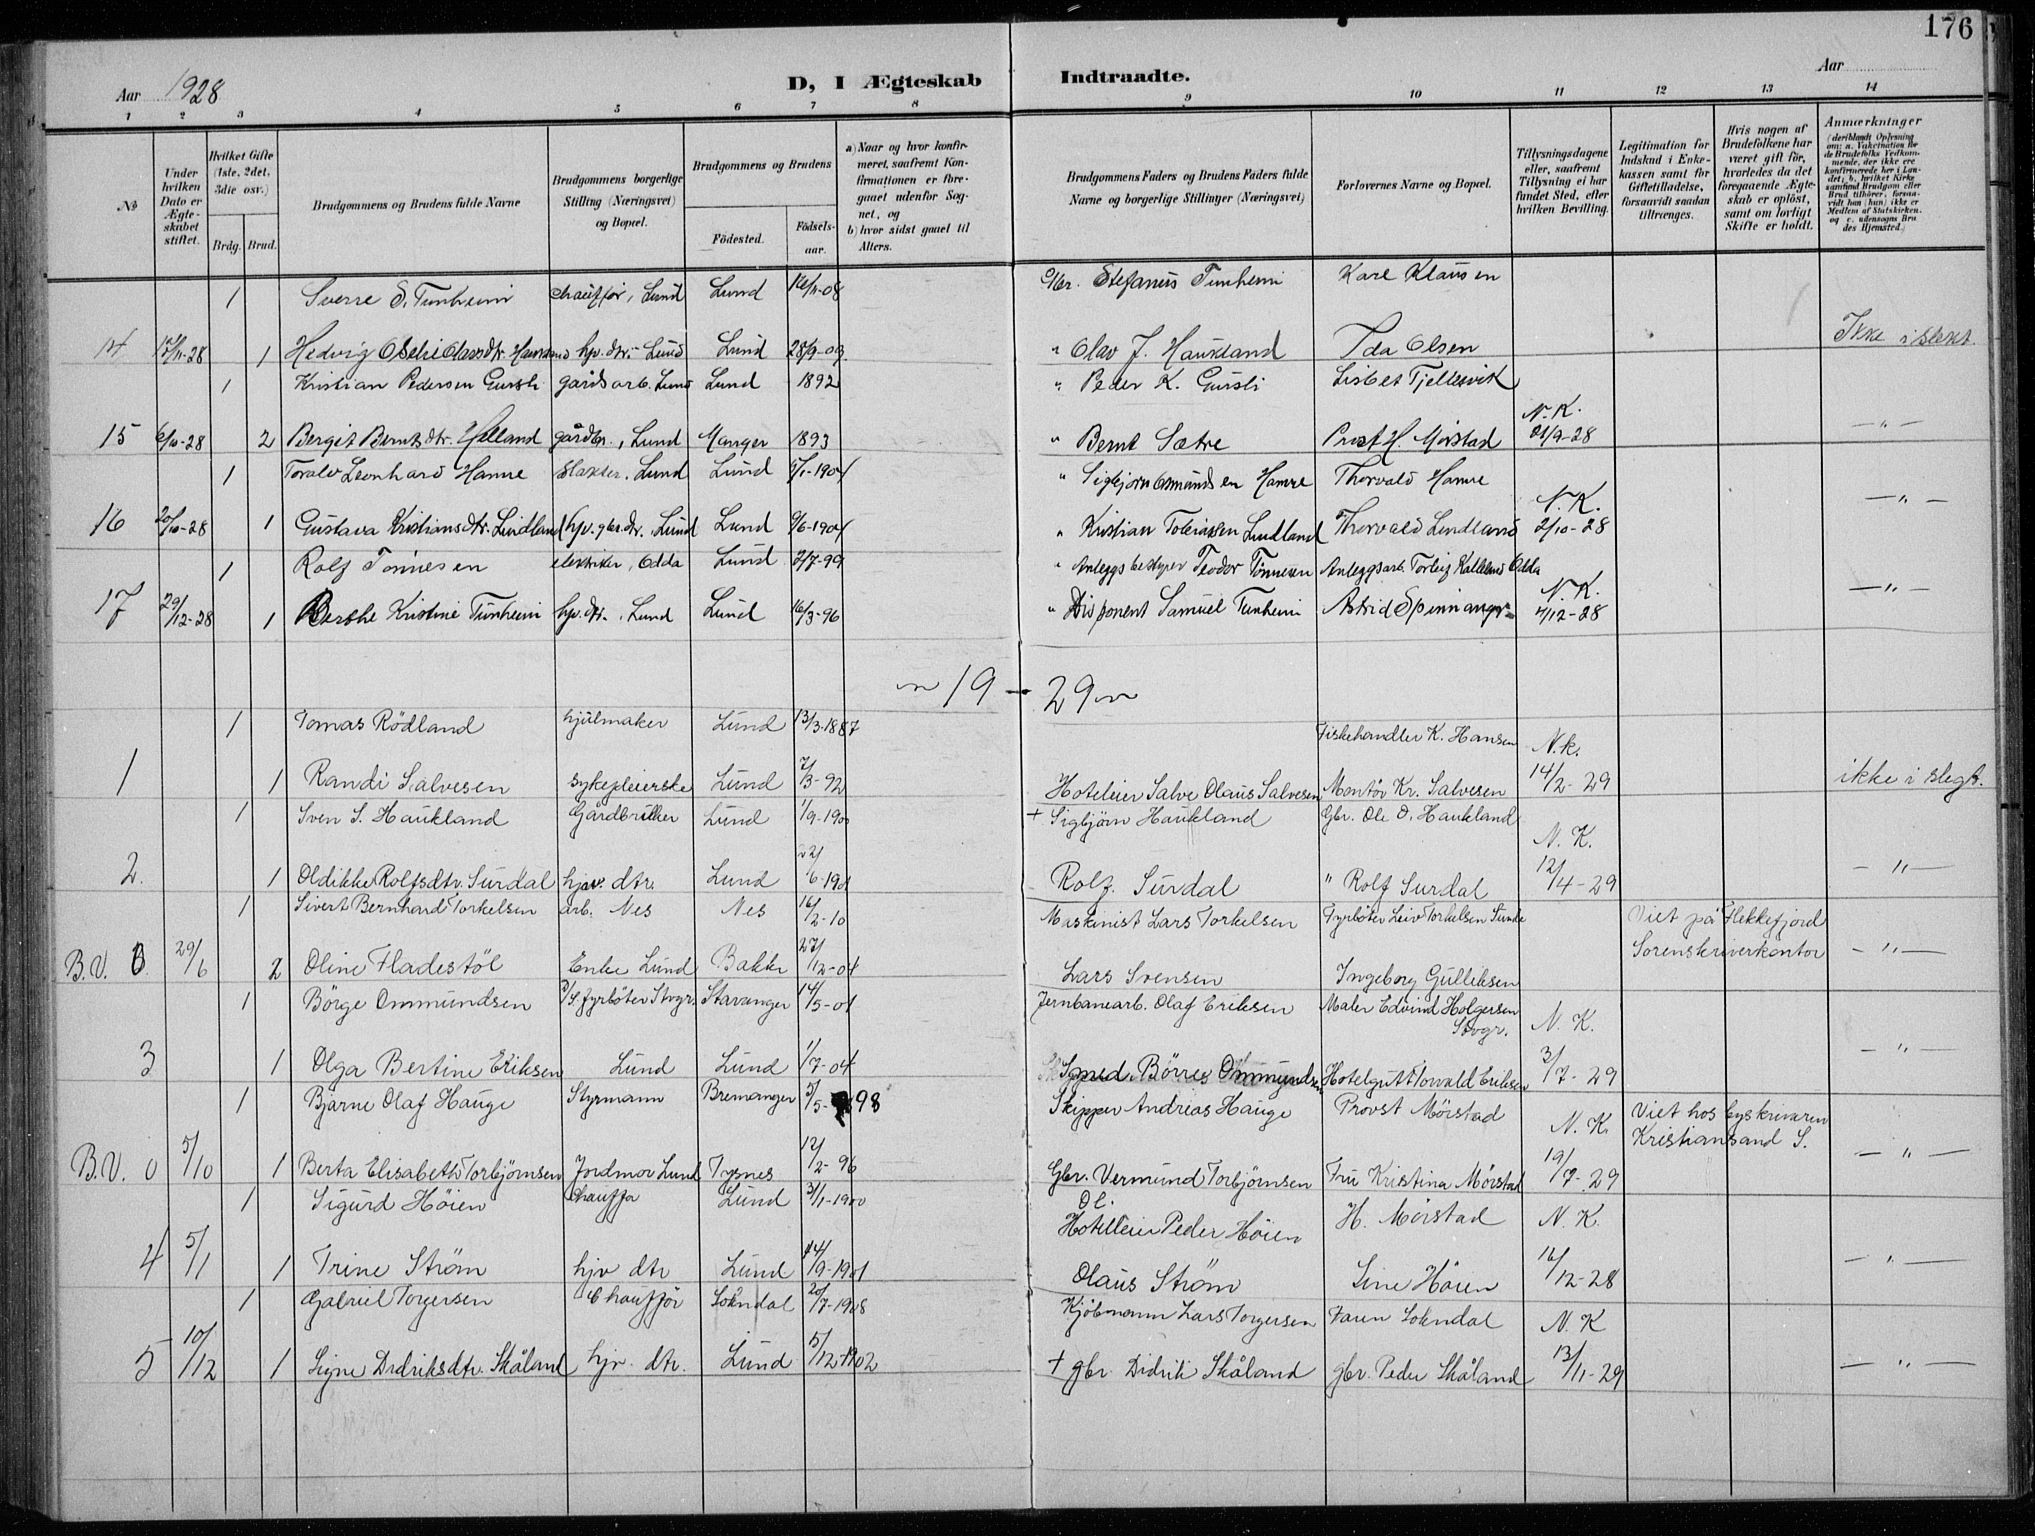 176
Aar 1928
D, I Ægteskab Indtraadte.
Aar
1 2 3 4 5 6 7 8 9 10 11 12 13 14
No
Under hvilken Dato er Ægteskabet stiftet.
Hvilket Gifte (1ste, 2det, 3die osv.)
Brdg. Brud.
Brudgommens og Brudens fulde Navne
Brudgommens borgerlige Stilling (Næringsvei) og Bopæl.
Brudgommens og Brudens
Fødested. Fødselsaar.
a) Naar og hvor konfirmeret, saafremt Konfirmationen er foregaaet udenfor Sognet, og
b) hvor sidst gaaet til Alters.
Brudgommens Faders og Brudens Faders fulde Navne og borgerlige Stillinger (Næringsvei)
Forlovernes Navne og Bopæl.
Tillysningsdagene eller, saafremt Tillysning ei har fundet Sted, efter hvilken Bevilling.
Legitimation for Indskud i Enkekassen samt for Giftetilladelse, forsaavidt saadan tiltrænges.
Hvis nogen af Brudefolkene har været gift før, hvorledes da det foregaaende Ægteskab er opløst, samt om lovligt Skifte er holdt.
Anmærkninger (deriblandt Oplysning om: a. Vakcination for de Brudefolks Vedkommende, der ikke ere konfirmerede her i Landet; b. hvilket Kirkesamfund Brudgom eller Brud tilhører, forsaavidt han (hun) ikke er Medlem af Statskirken. og c. udensogns Brudes Hjemsted.)
1 Sverre S. Tunheim chauffør, Lund Lund 16/11-08 Gbr. Stefanus Tunheim Karl Klausen
14 17/11-28 1 Hedvig Olavsdtr. Haukland hp. dtr. Lund Lund 28/9-09 " Olav J. Haukland Ida Olsen Ikke i slekt.
1 Kristian Pedersen Gursli gårdsarb. Lund Lund 1892 " Peder K. Gursli Lisbet Tjellesvik
15 6/10-28 2 Bergit Berntsdtr. Helland gårdbr., Lund Manger 1893 " Bernt Sætre Prost H. Mørstad N. K. 21/9-28 — " —
1 Toralv Leonhard Hamre slakter, Lund Lund 5/1-1904 " Sigbjørn Omundsen Hamre Thorvald Hamre
16 20/10-28 1 Gustava Kristiansdtr. Lindland hp. gbr.dtr., Lund Lund 9/6-1904 " Kristian Tobiassen Lindland Thorvald Lindland N. K. 2/10-28 — " —
1 Rolf Tønnesen elektriker, Odda Lund 2/7-99 " Anleggsbestyrer Teodor Tønnesen Anleggsarb. Torleiv Kalleland Odda
17 29/12-28 1 Berthe Kristine Tunheim hp. dtr., Lund Lund 16/3-96 " Disponent Samuel Tunheim Astrid Spinnangr N. K. 4/12-28 — " —
19 - 29
1 Tomas Rödland hjulmaker Lund 13/3-1887 Fiskehandler K. Hansen
1 1 Randi Salvesen sykepleierske Lund 7/3-92 Hoteleier Salve Olaus Salvesen Montör Kr. Salvesen N. K. 14/2-29 ikke i slegt.
1 Sven S. Haukland Gårdbruker Lund 1/9-1900 + Sigbjörn Haukland Gbr. Ole O. Haukland
2. 1 Oldikke Rolfsdtr. Surdal hjv. dtr. Lund 22/6-1901 Rolf Surdal " Rolf Surdal N. K. 12/4-29 — " —
1 Sivert Bernhard Torkelsen arb. Nes Nes 16/2-10 Maskinist Lars Torkelsen Fyrböter Leiv Torkelsen Sunde Viet på Flekkefjord
B.V. 0 29/6 2 Oline Fladestöl Enke Lund Bakke 27/12-04 Lars Svensen Ingeborg Gulliksen Sorenskriverkontor — " —
1 Börge Ommundsen fyrböter Stvgr. Stavanger 14/5-01 Jernbanearb. Olaf Eriksen Maler Edvind Holgersen Stvgr.
3 1 Olga Bertine Eriksen Lund Lund 1/7-04 Smed. Börres Ommundsen Hotelgutt Torvald Eriksen N. K. 3/7-29 — " —
1 Bjarne Olaf Hauge Styrmann Bremanger 5/5-98 Skipper Andreas Hauge Provst Mörstad Viet hos byskriveren
B.V. 0 5/10 1 Berta Elisabeth Torbjörnsen Jordmor Lund Tysnes 12/2-96 Gbr. Vermund Torbjörnsen Fru Kristina Mörstad N. K. 19/7-29 Kristiansand S. — " —
1 Sigurd Höien Chauffør Lund 3/1-1900 Hotelleier Peder Ol. Höien H. Mörstad
4 5/1 1 Trine Ström hjv dtr Lund 14/9-1901 Olaus Ström Sine Höien N. K. 16/12-28 — " —
1 Gabriel Torgersen Chauffør Sokndal 20/7-1908 Kjöbmann Lars Torgersen Faren Sokndal
5 10/12 1 Signe Didriksdtr. Skåland hjv. dtr. Lund 5/12-1902 + gbr. Didrik Skåland gbr. Peder Skåland N. K 13/11-29 — " —